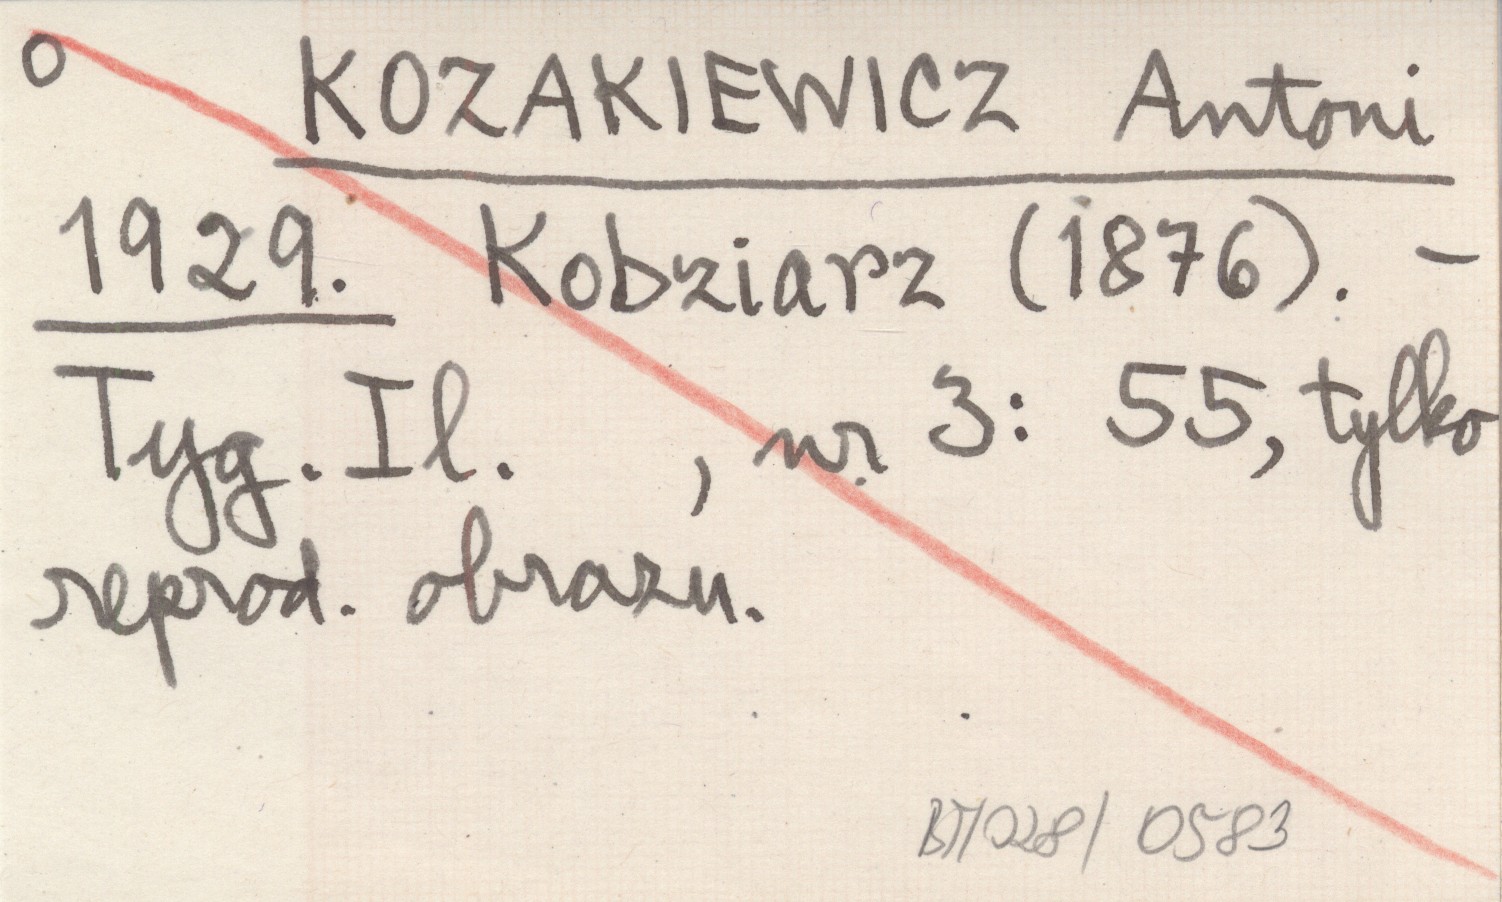 o KOZAKIEWICZ Antoni
1929. Kobziarz (1876). –
Tyg. Il. , nr 3: 55, tylko
reprod. obrazu.
BM/028/ 0583